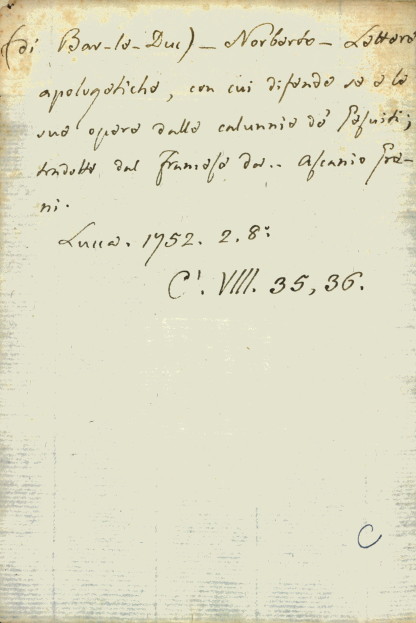 (di Bar-le-Duc) - Norberto - Lettere
apologetiche, con cui difende se e le
sue opere dalle calunnie de' Gesuiti;
tradotte dal Francese da.. Ascanio Gra-
ni.
Lucca. 1752. 2. 8.°
C¹. VIII. 35, 36.
C